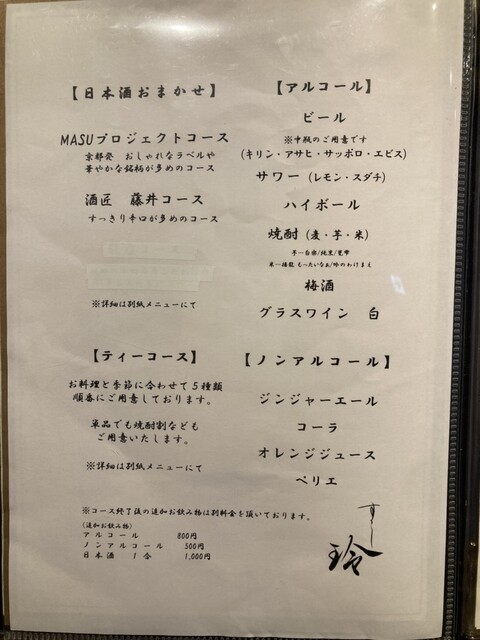 【日本酒おまかせ】
MASUプロジェクトコース
京都発　おしゃれなラベルや
華やかな銘柄が多めのコース
酒匠　藤井コース
すっきり辛口が多めのコース
※詳細は別紙メニューにて
【アルコール】
ビール
※中瓶のご用意です
(キリン・アサヒ・サッポロ・エビス)
サワー (レモン・スダチ)
ハイボール
焼酎 (麦・芋・米)
梅酒
グラスワイン　白
【ティーコース】
お料理と季節に合わせて５種類
順番にご用意しております。
単品でも焼酎割なども
ご用意いたします。
※詳細は別紙メニューにて
【ノンアルコール】
ジンジャーエール
コーラ
オレンジジュース
ペリエ
※コース終了後の追加お飲み物は別料金を頂いております。
(追加お飲み物)
アルコール　800円
ノンアルコール　500円
日本酒　１合　1,000円
すし
玲